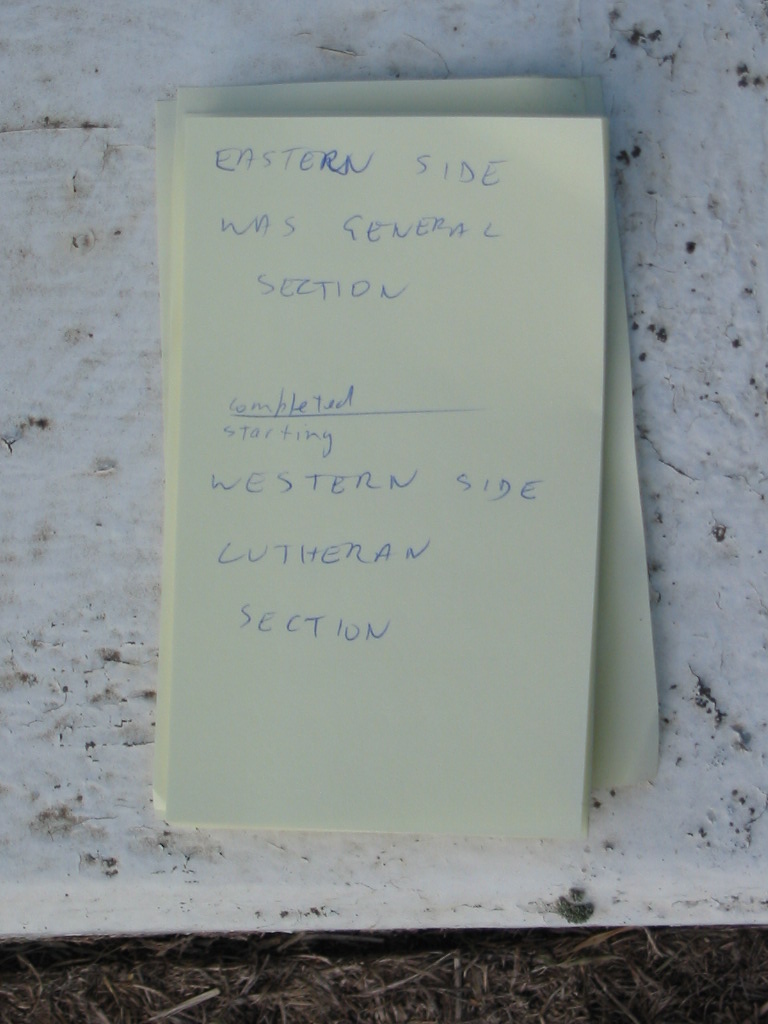 EASTERN SIDE
WAS GENERAL
SECTION
completed
starting
WESTERN SIDE
LUTHERAN
SECTION